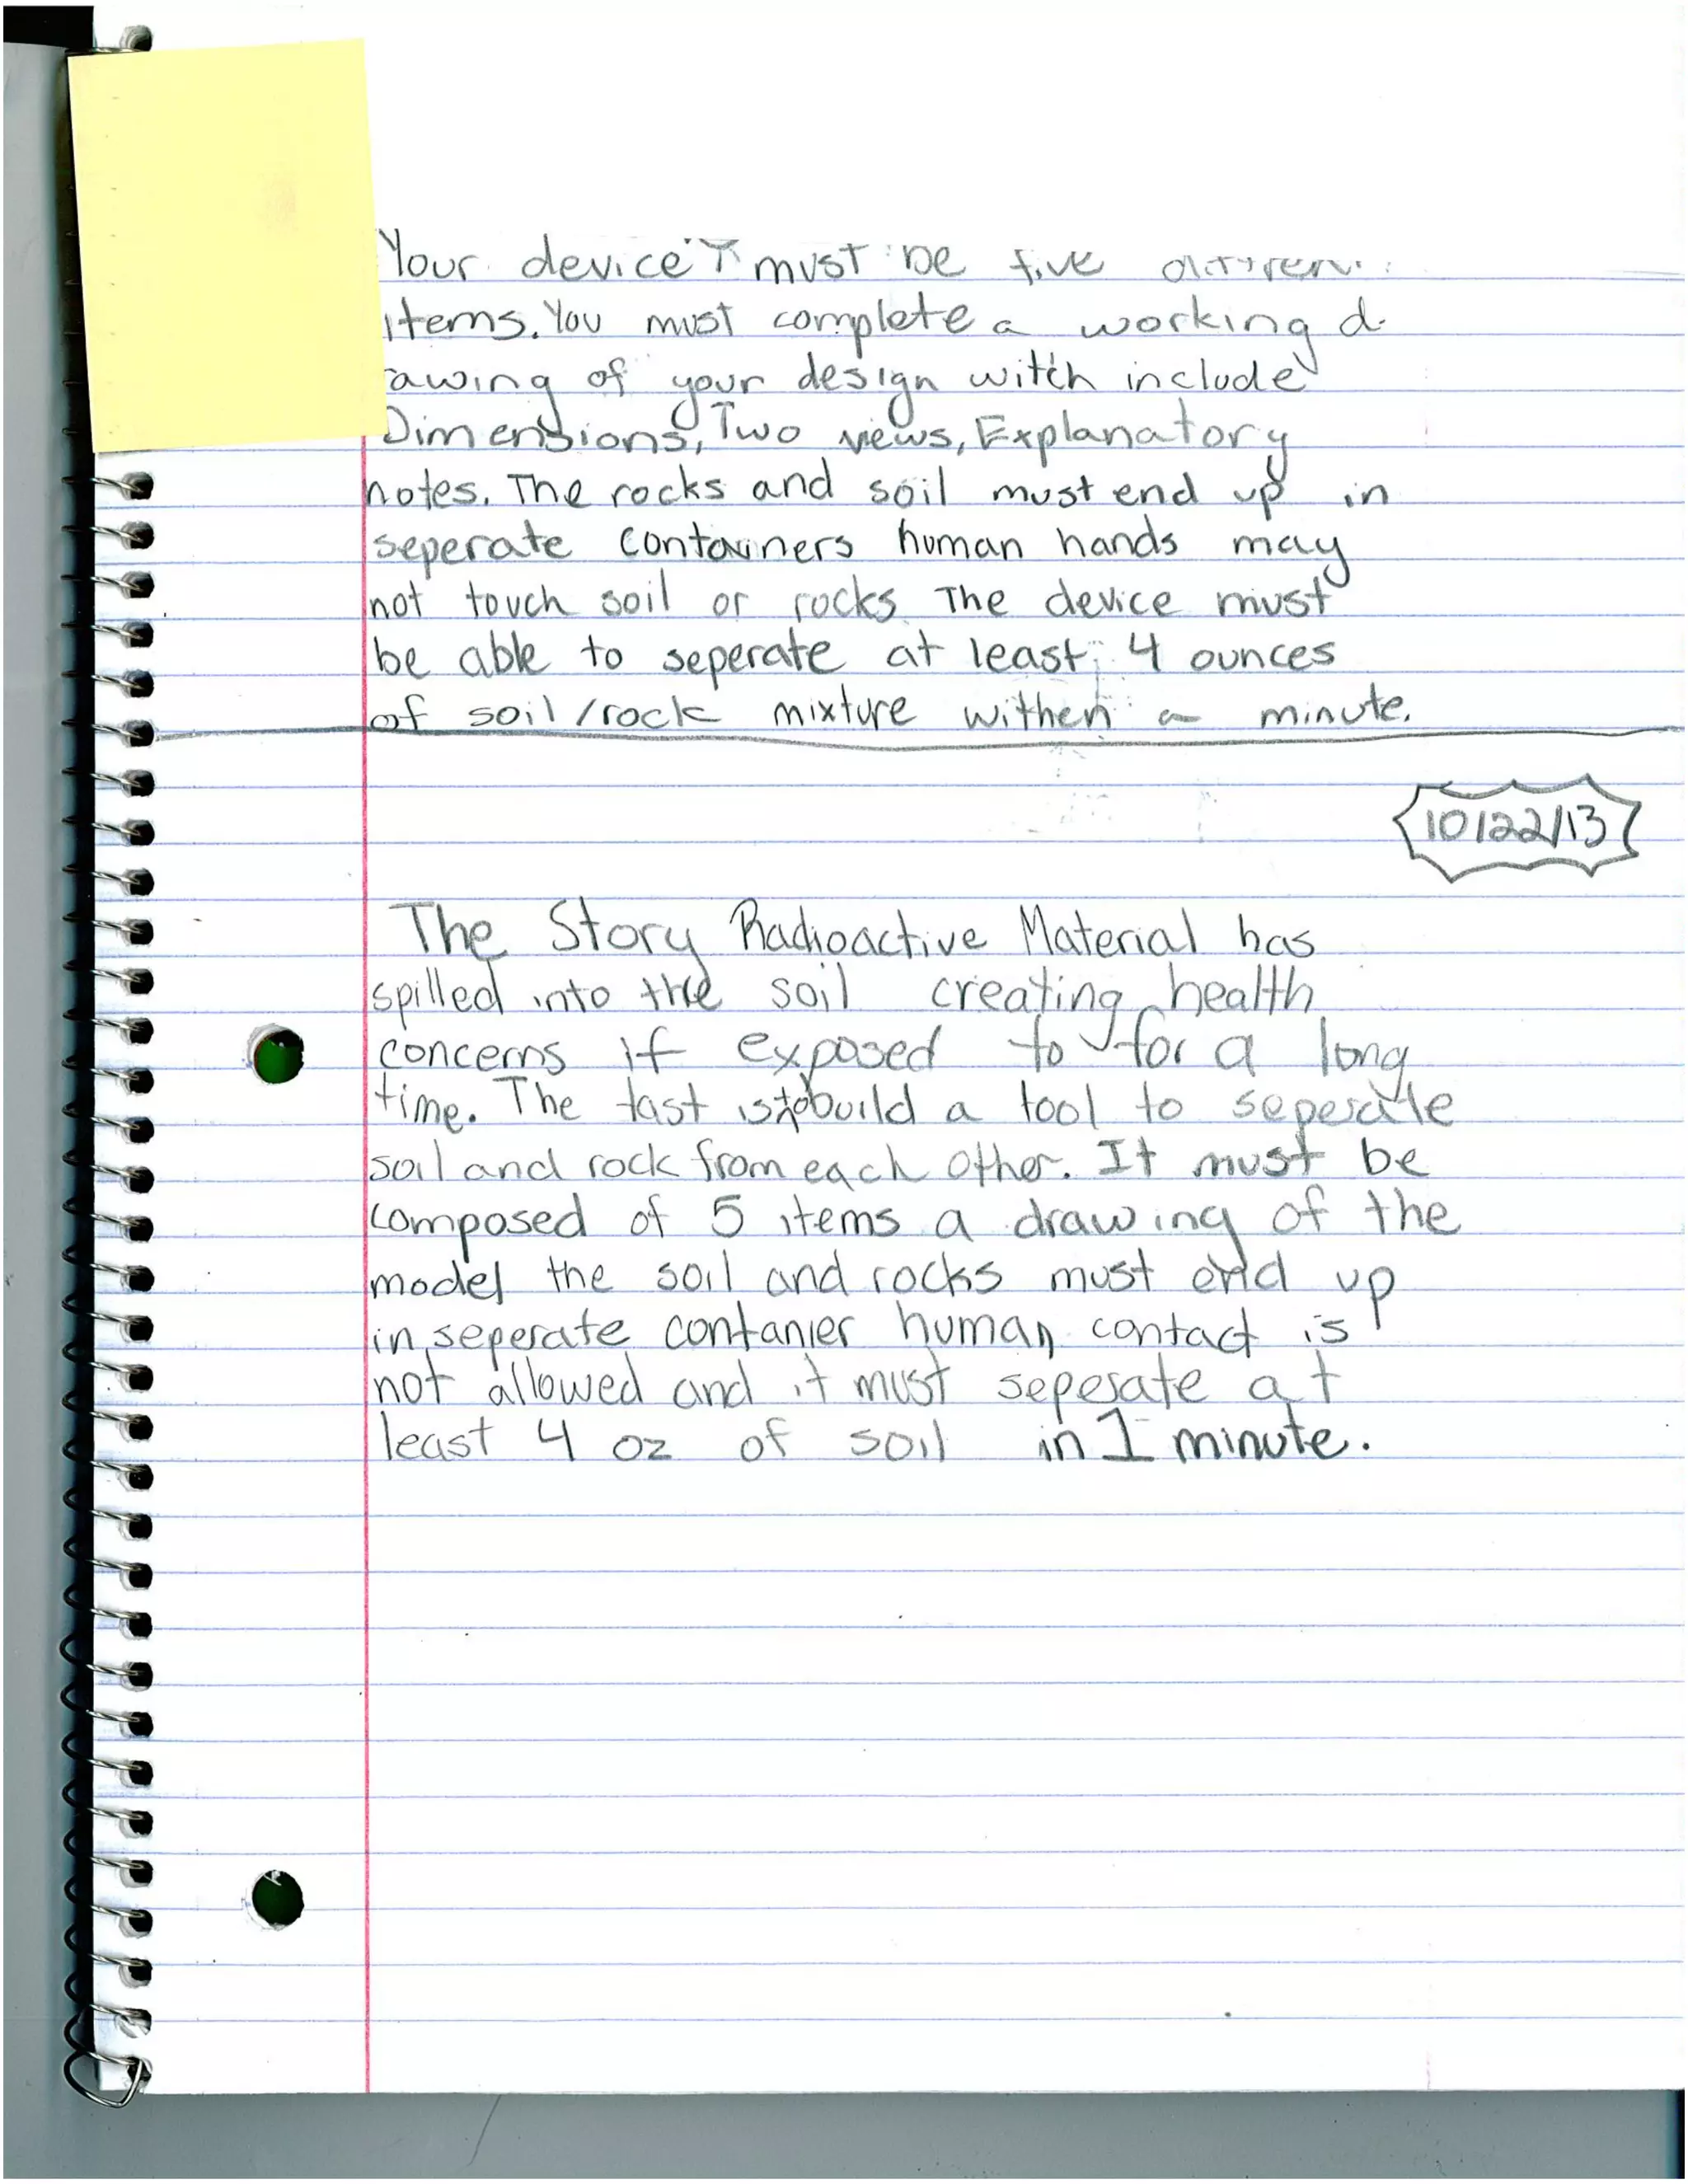 Your device must be five
items. You must complete a working d
rawing of your design witch include
Dimensions, Two views, Explanatory
notes. The rocks and soil must end up in
seperate containers human hands may
not touch soil or rocks The device must
be able to seperate at least 4 ounces
of soil/rock mixture withen a minute.
10/22/13
The Story Radioactive Material has
spilled into the soil creating health
concerns if exposed to for a long
time. The tast is to build a tool to seperate
soil and rock from each other. It must be
composed of 5 items a drawing of the
model the soil and rocks must end up
in seperate contanier human contact is
not allowed and it must seperate at
least 4 oz of soil in 1 minute.